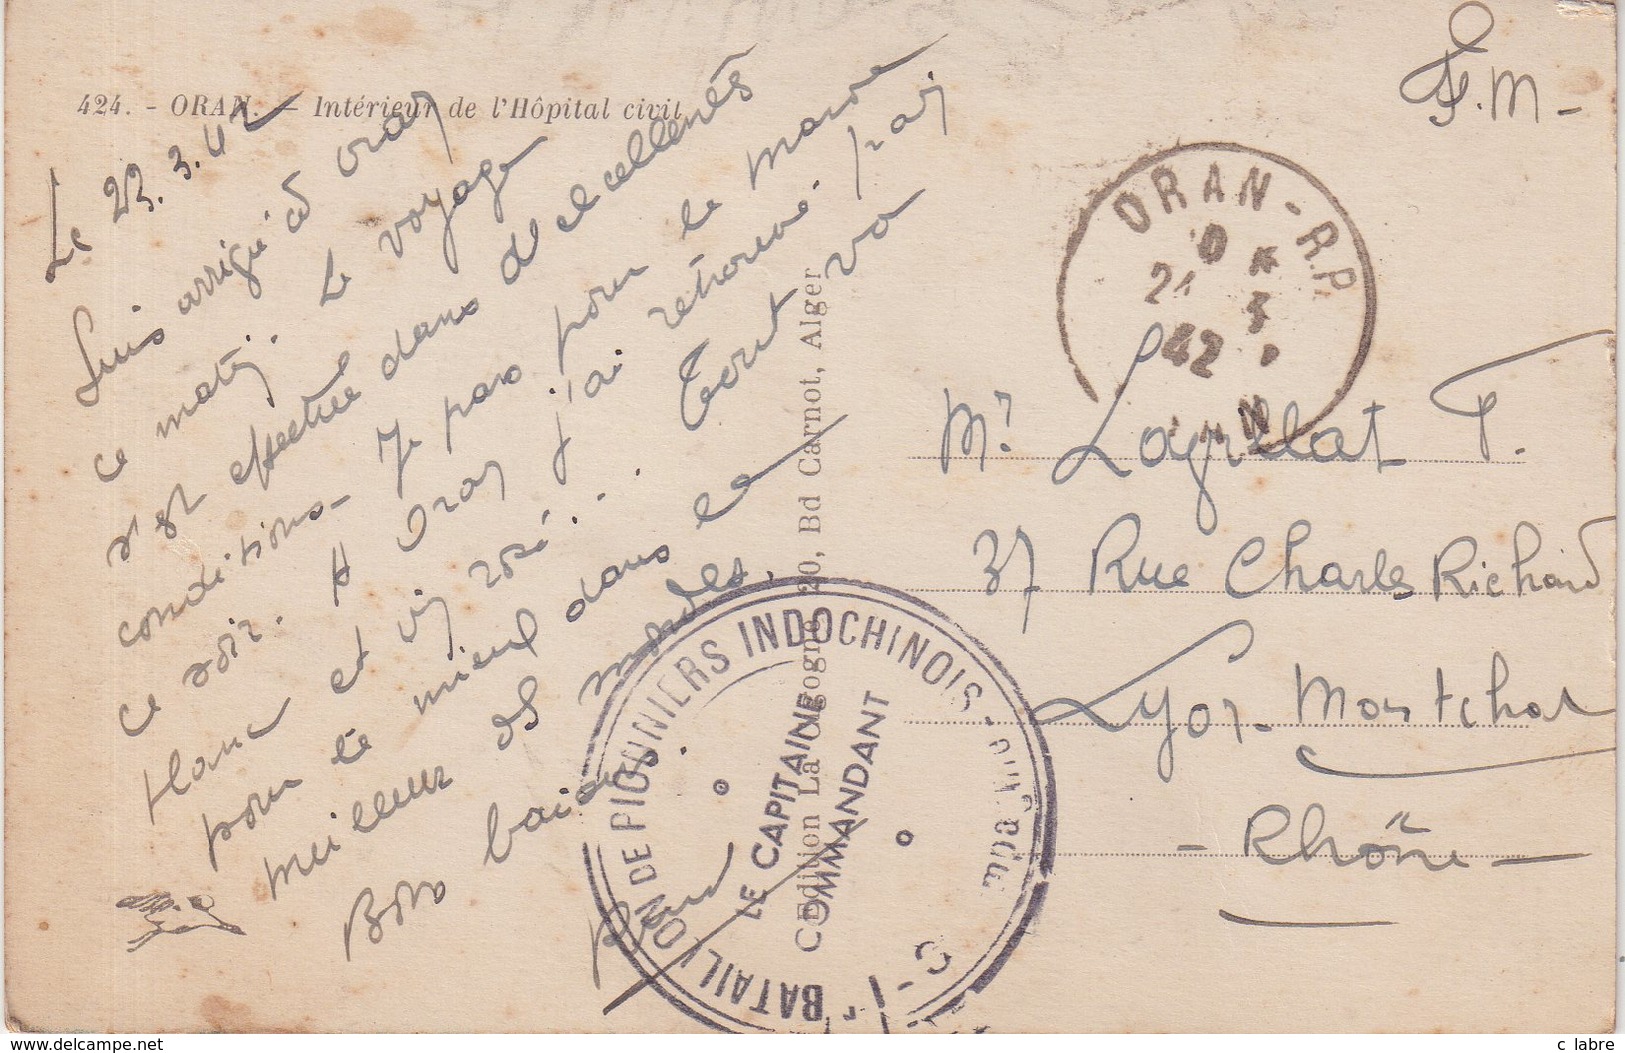 424. - ORAN. - Intérieur de l'Hôpital civil
Le 23.3.42
Suis arrivé à Oran
ce matin. Le voyage
s'est effectué dans d'excellentes
conditions. Je pars pour le Maroc
ce soir. A Oran j'ai retrouvé
blanc et vin rosé. Tout va
pour le mieux dans le
meilleur des mondes.
Bons baisers.
F.M-
ORAN-R.P.
24
3
42
Mr Lagrellat P.
37 Rue Charles Richard
Lyon-Montchat
- Rhône -
Edition La Cigogne, 20, Bd Carnot, Alger
BATAILLON DE PIONNIERS INDOCHINOIS
LE CAPITAINE
COMMANDANT
www.delcampe.net
c labre